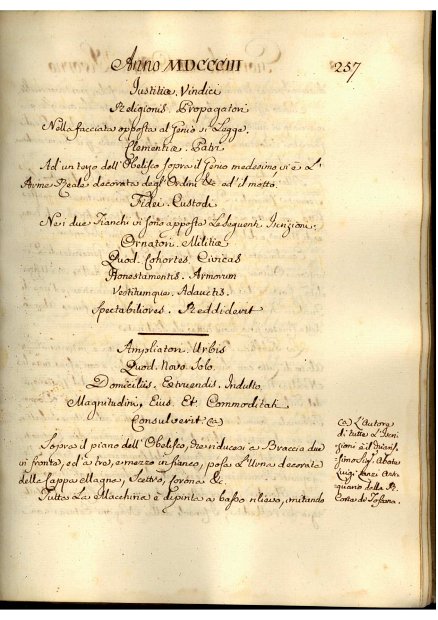 Anno MDCCCIII
257
Justitiæ. Vindici
Religionis. Propagatori
Nella facciata opposta al Genio si Legge.
Clementiæ. Patri
Ad un terzo dell'Obelisco sopra il Genio medesimo, vi è L'
Arme Reale decorata degl'Ordini &c ed il motto.
Fidei. Custodi
Nei due Fianchi vi sono apposte Le seguenti Iscrizioni:
Ornatori. Militiæ
Quod. Cohortes. Civicas
Honestamentis. Armorum
Vestitumque. Adauctis.
Spectabiliores. Reddiderit
Ampliatori. Urbis
Quod. Novo. Solo.
Domiciliis. Extruendis. Indulto
Magnitudini. Eius. Et. Commoditati
Consulverit. (a)
Sopra il piano dell'Obelisco, che riducesi a Braccia due
in fronte, ed a tre, e mezzo in fianco, posa L'Urna decorata
delle Cappa Magna, Scettro, Corona &c.
Tutta La Macchina è dipinta a basso rilievo, imitando
(a) L'Autore
di tutte L'Iscri-
zioni è il Chiaris-
simo Sig. Abate
Luigi Lanzi Ant-
iquario della R.
Corte di Toscana.